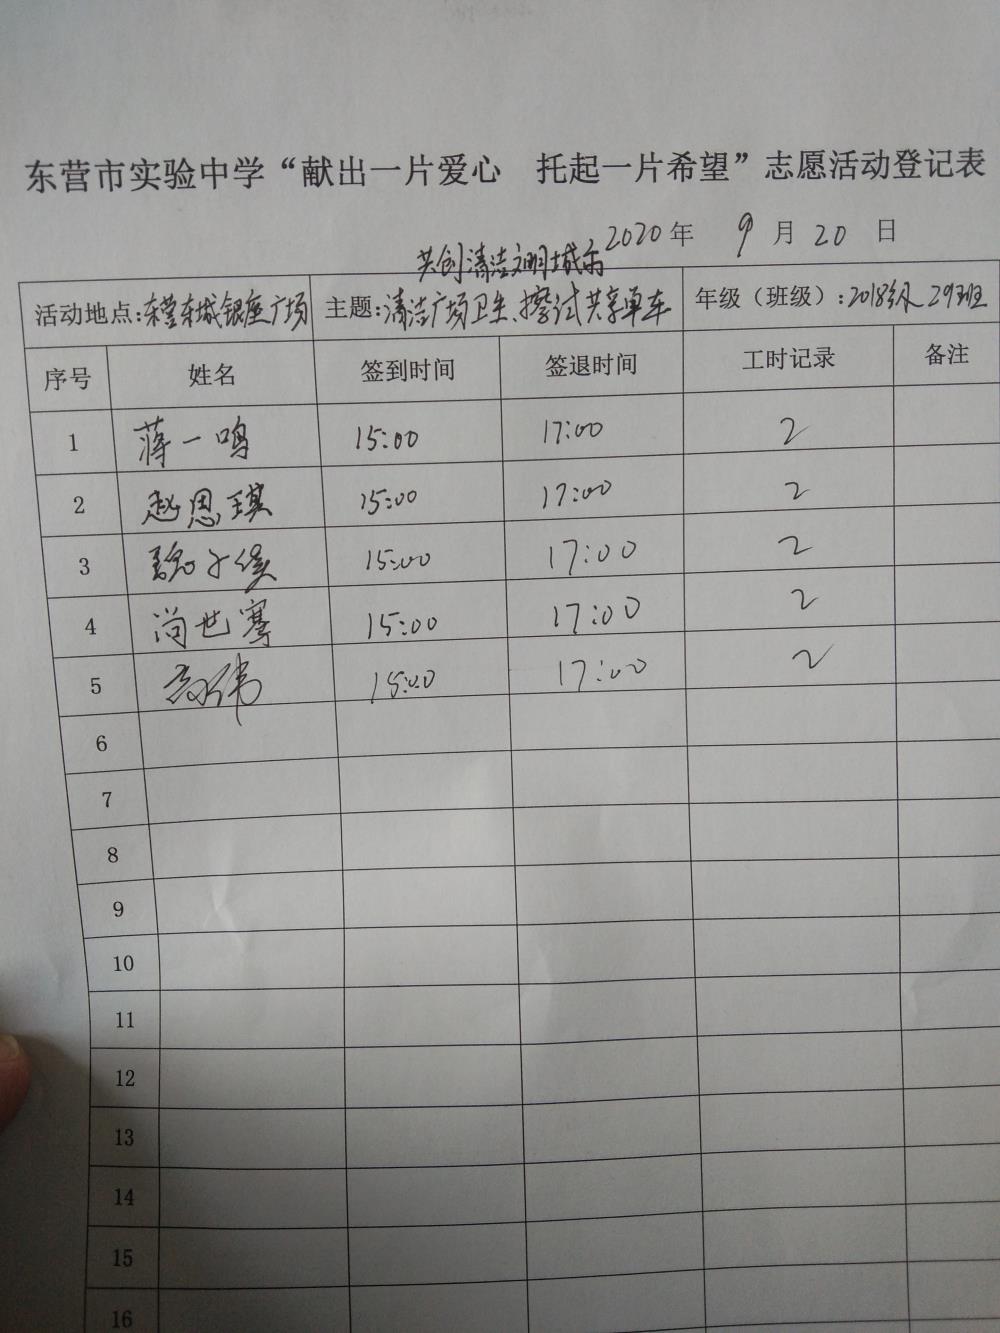 东营市实验中学“献出一片爱心 托起一片希望”志愿活动登记表
2020年 9月20日
共创清洁文明城市
活动地点:东营东城银座广场 主题:清洁广场卫生、擦试共享单车 年级（班级）:2018级 29班
序号 姓名 签到时间 签退时间 工时记录 备注
1 蒋一鸣 15:00 17:00 2
2 赵思琪 15:00 17:00 2
3 魏子 15:00 17:00 2
4 尚世骞 15:00 17:00 2
5 15:00 17:00 2
6
7
8
9
10
11
12
13
14
15
16